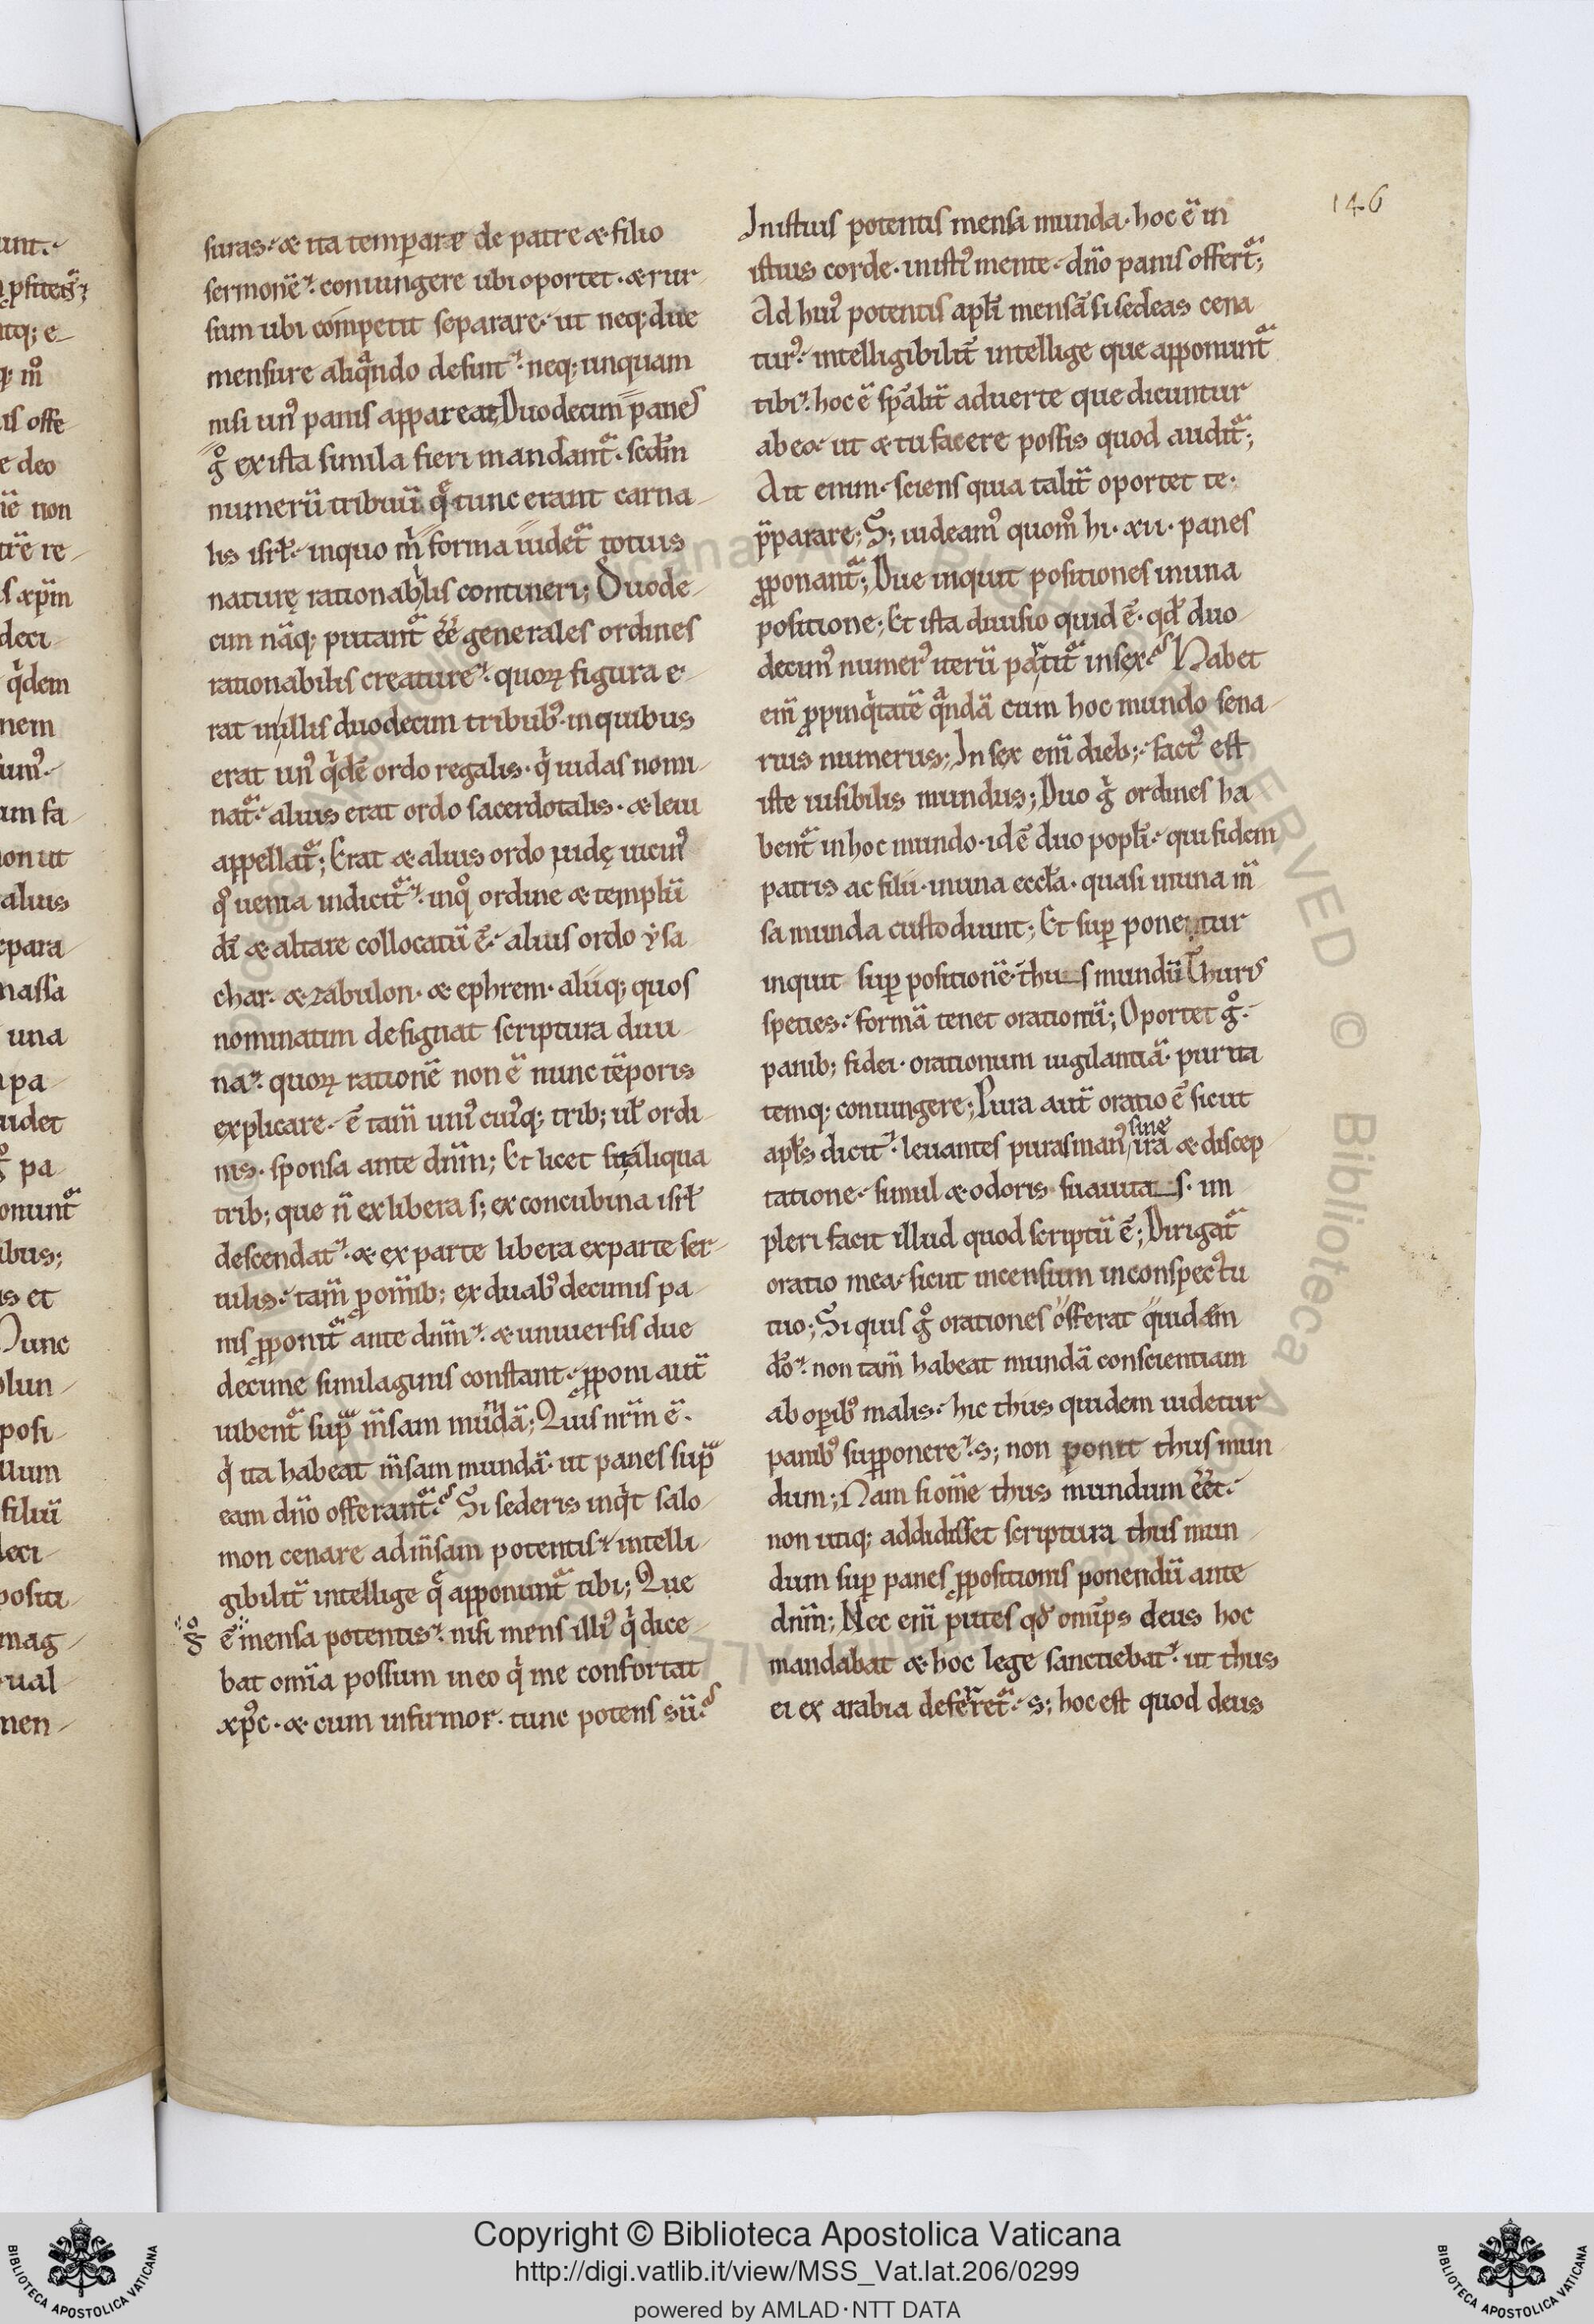 146
suras · & ita temperare de patre & filio
sermonē · coniungere ubi oportet · & rur
sum ubi competit separare · ut neq; due
mensure aliqᵃndo desint · neq; unquam
nisi un᾽ panis appareat; Duodecim panes
gͦ ex ista simila fieri mandant᾽ · sedm̄
numerū tribuū q̄ tunc erant carna
lis isrł · in quo m̄ forma uidet᾽ totius
naturę rationabilis contineri; Duode
cim nāq; putant᾽ eē generales ordines
rationabilis creature · quoꝝ figura e
rat in illis duodecim tribub᾽ · in quibus
erat un᾽ qͥdē ordo regalis · qͥ iudas nomi
nat᾽ · alius erat ordo sacerdotalis · & leui
appellat᾽; Erat & alius ordo iudę uicin᾽
qͦ uema indicit᾽ · inqͦ ordine & templū
dī & altare collocatū ē · alius ordo ysa
char · & zabulon · & ephrem · aliiq; quos
nominatim designat scriptura diui
na · quoꝝ rationē non ē nunc tēporis
explicare · ē tam̄ uni᾽ cui᾽q; trib; uł ordi
nis · sponsa ante dn̄m; Et licet sit aliqua
trib; que n̄ ex libera s; ex concubina isrł
descendat · & ex parte libera ex parte ser
uilis · tam̄ ꝓ om̄ib; ex duab᾽ decimis pa
nis ꝓponit᾽ ante dn̄m · & uniuersis due
decime similaginis constant · ꝓponi aut̄
iubent᾽ supᵃ m̄sam mundā; Quis nr̄m ē ·
qͥ ita habeat m̄sam mundā · ut panes supᵃ
eam dn̄o offerant᾽ · Si sederis inqͥt salo
mon cenare ad m̄sam potentis · intelli
gibilit̄ intellige q̄ apponunt᾽ tibi; Que
ē mensa potentis · nisi mens illi᾽ qͥ dice
bat om̄ia possum in eo qͥ me confortat
xp̄c · & cum infirmor · tunc potens sū ·
In istius potentis mensa munda · hoc ē in
istius corde · in isti᾽ mente · dn̄o panis offert᾽;
Ad hui᾽ potentis apłi mensā si sedeas cena
tur᾽ · intelligibilit̄ intellige que apponunt᾽
tibi · hoc ē sp̄alit̄ aduerte que dicuntur
ab eo · ut & tu facere possis quod audit᾽;
Ait enim · sciens quia talit̄ oportet te ·
p̄parare; S; uideam᾽ quom̊ hi · xii · panes
ꝓponant᾽; Due inquit positiones in una
positione; Et ista diuisio quid ē · qd̄ duo
decim᾽ numer᾽ iterū partit᾽ in sex · Habet
em̄ ꝓpinqͥtatē qᵃndā cum hoc mundo sena
rius numerus; In sex em̄ dieb; · fact᾽ est
iste uisibilis mundus; Duo gͥ ordines ha
bent᾽ in hoc mundo · id ē duo popłi · qui fidem
patris ac filii · in una eccła · quasi in una m̄
sa munda custodiunt; Et sup̱ ponentur
inquit sup̱ positionē · thus mundū Thuris
species · formā tenet orationū; Oportet gͦ ·
panib; fidei · orationum uigilantiā · purita
temq; coniungere; Pura aut̄ oratio ē sicut
apłs dicit · leuantes puras man᾽ sine ira & discep
tatione · simul & odoris suauitas · im
pleri facit illud quod scriptū ē; Dirigat᾽
oratio mea · sicut incensum in conspectu
tuo; Si quis gͦ orationes offerat quidem
dō · non tam̄ habeat mundā conscientiam
ab oꝑib᾽ malis · hic thus quidem uidetur
panib᾽ supponere · s; non ponit thus mun
dum; Nam si om̄e thus mundum eēt ·
non utiq; addidisset scriptura thus mun
dum sup̱ panes ꝓpositionis ponendū ante
dn̄m; Nec enī putes qd̄ omīps deus hoc
mandabat & hoc lege sanctiebat · ut thus
ei ex arabia deferret᾽ · s; hoc est quod deus
Copyright © Biblioteca Apostolica Vaticana
http://digi.vatlib.it/view/MSS_Vat.lat.206/0299
powered by AMLAD·NTT DATA
BIBLIOTECA APOSTOLICA VATICANA
BIBLIOTECA APOSTOLICA VATICANA